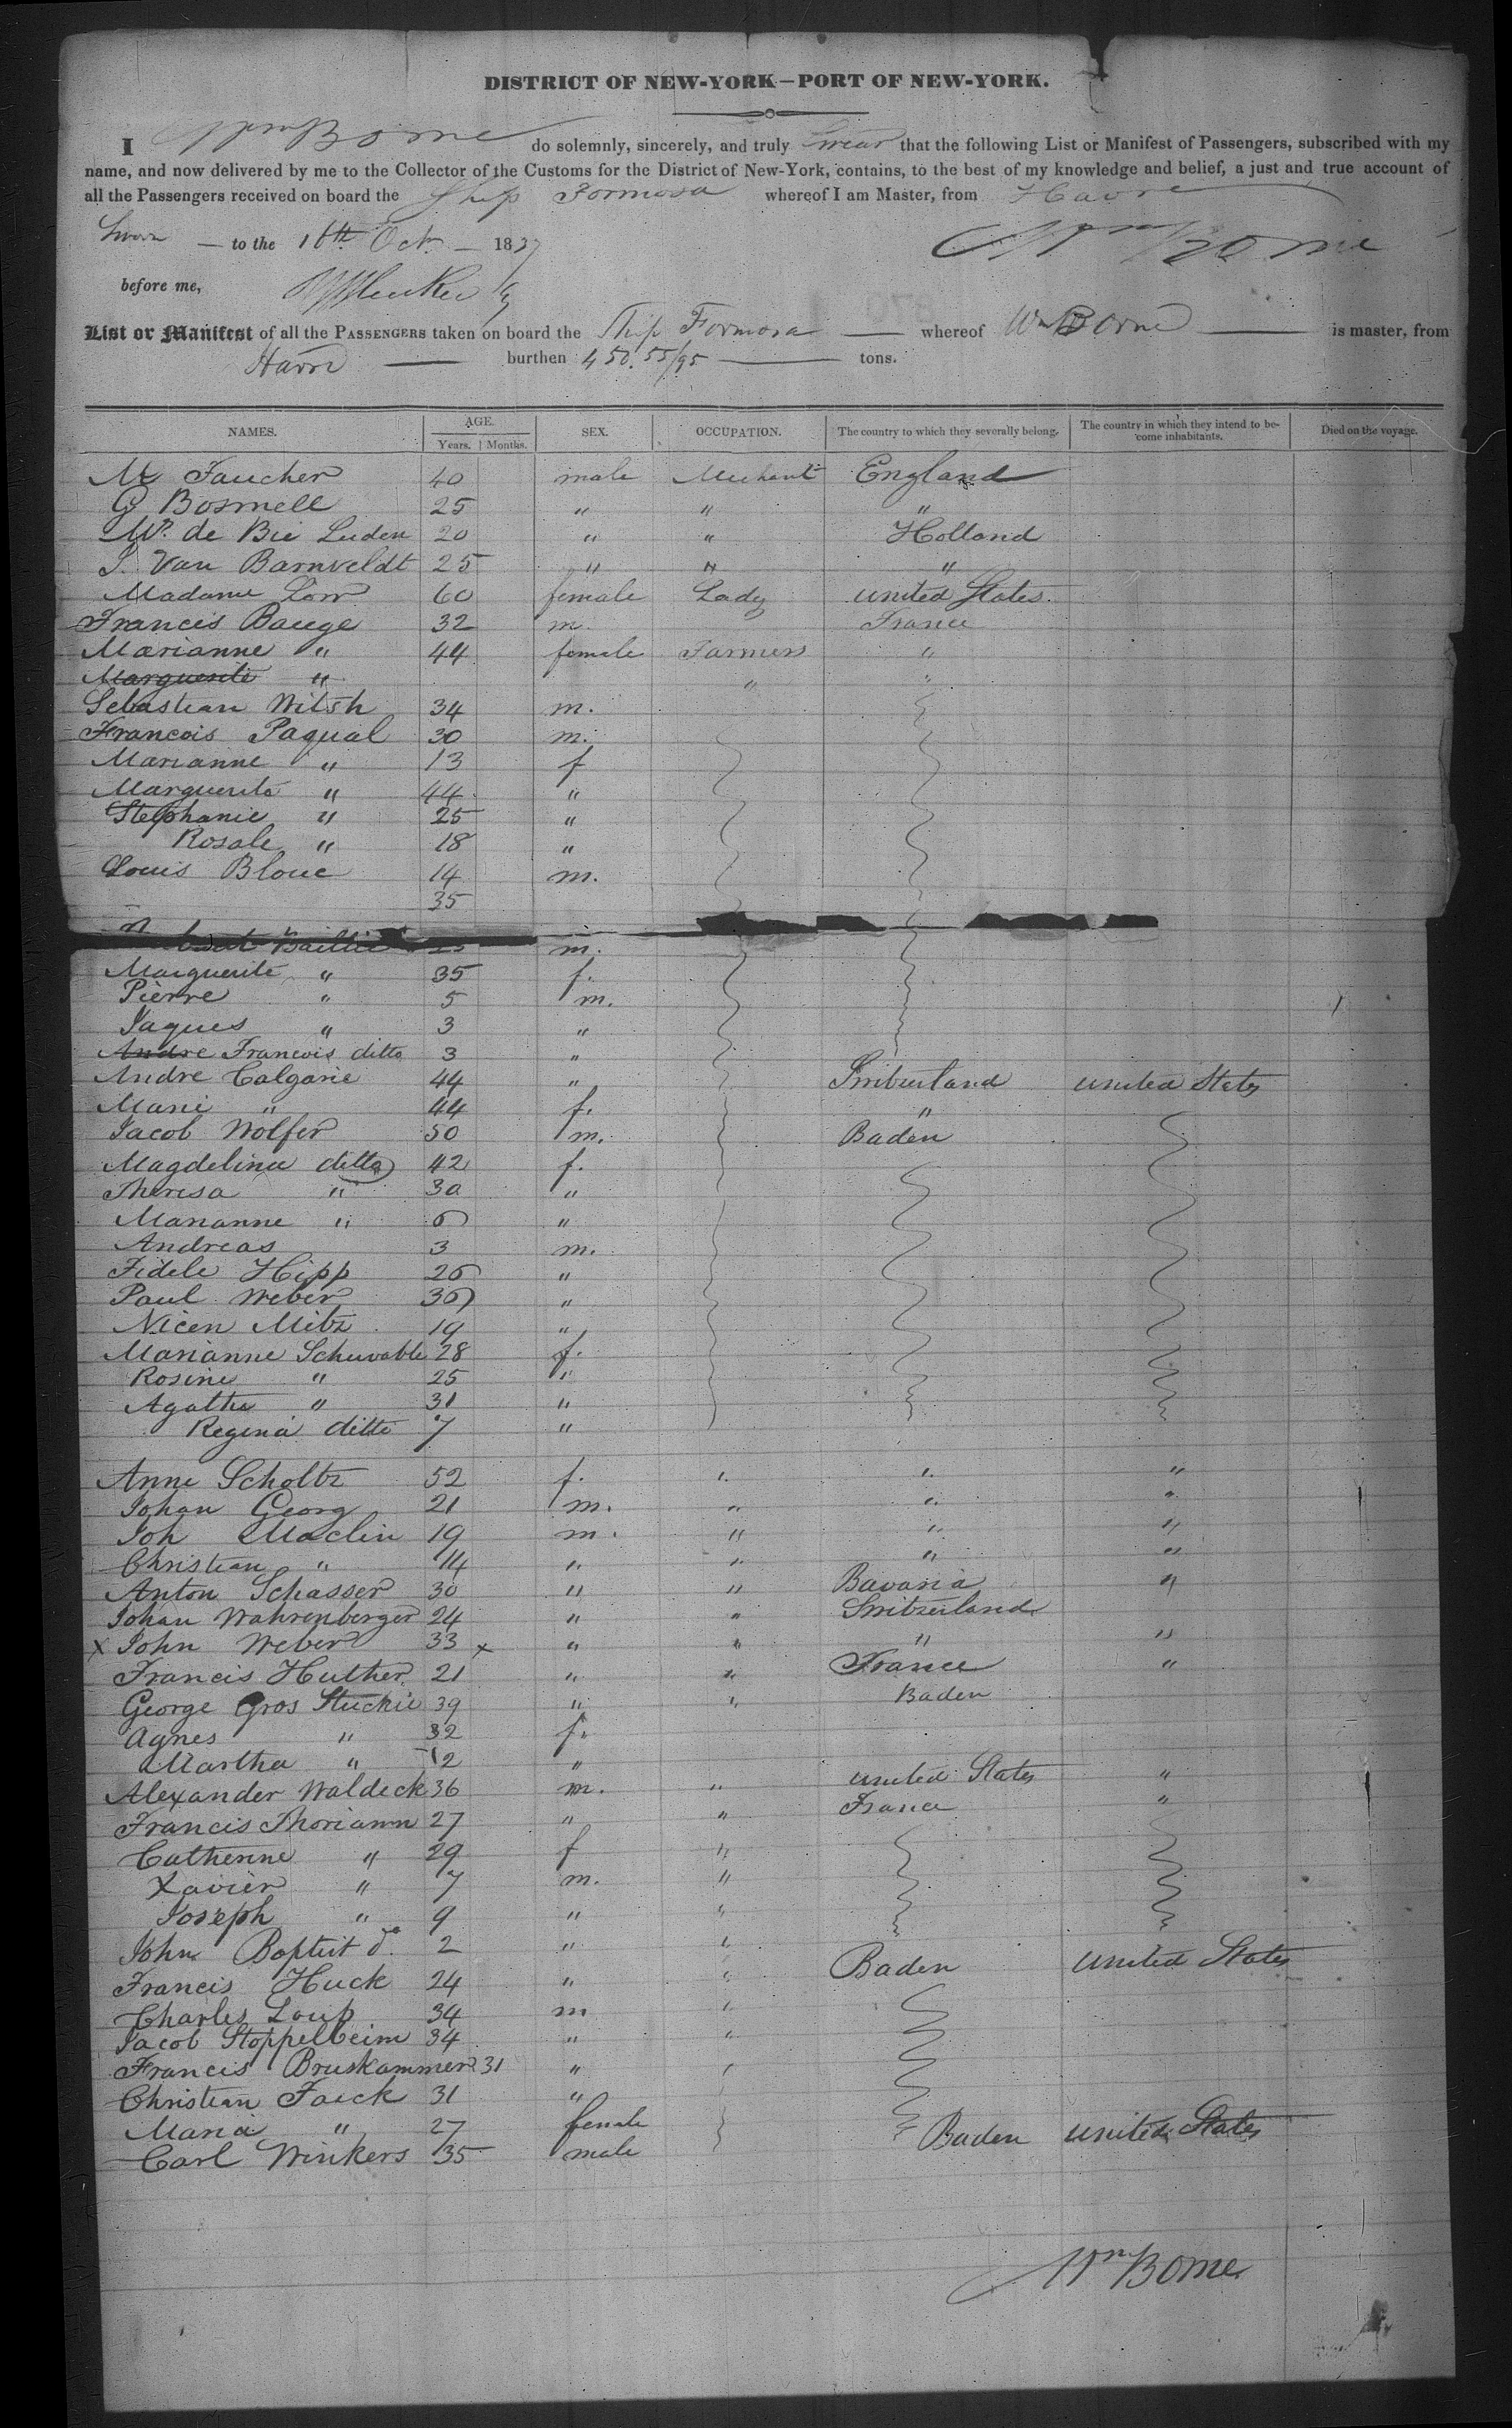 DISTRICT OF NEW-YORK—PORT OF NEW-YORK.
I Wm Borne do solemnly, sincerely, and truly Swear that the following List or Manifest of Passengers, subscribed with my
name, and now delivered by me to the Collector of the Customs for the District of New-York, contains, to the best of my knowledge and belief, a just and true account of
all the Passengers received on board the Ship Formosa whereof I am Master, from Havre
Sworn — to the 16th Oct. — 1837 Wm Borne
before me,
List or Manifest of all the PASSENGERS taken on board the Ship Formosa — whereof Wm Borne — is master, from
Havre — burthen 450.55/95 — tons.
NAMES. AGE. Years. Months. SEX. OCCUPATION. The country to which they severally belong. The country in which they intend to become inhabitants. Died on the voyage.
Mr Faucher 40 male Merchant England
G Bosmell 25 " " "
Mr. de Bie Luden 20 " " Holland
J. Van Barnveldt 25 " " "
Madame Low 60 female Lady united States.
Francis Bauge 32 m. France
Marianne " 44 female Farmers "
Marguerite " " "
Sebastian Witsh 34 m.
Francois Paqual 30 m.
Marianne " 13 f
Marguerite " 44 "
Stephanie " 25 "
Rosale " 18 "
Louis Blouc 14 m.
35
Baillie 25 m.
Marguerite " 35 f.
Pierre " 5 m.
Jaques " 3 "
Andre Francois ditto 3 "
Andre Calgarie 44 " Switzerland united States
Marie " 44 f. "
Jacob Wolfer 50 m. Baden
Magdelina ditto 42 f.
Theresa " 30 "
Marianne " 6 "
Andreas 3 m.
Fidele Hipp 26 "
Paul Weber 36 "
Nicen Mitz 19 "
Marianne Schuvable 28 f.
Rosine " 25 "
Agatha " 31 "
Regina ditto 7 "
Anne Scholtz 52 f. " " "
Johan Georg 21 m. " " "
Joh Maclin 19 m. " " "
Christian " 14 " " " "
Anton Schasser 30 " " Bavaria "
Johan Wahrenberger 24 " " Switzerland
x John Weber 33 x " " " "
Francis Huther 21 " " France "
George Gros Stuckie 39 " " Baden
Agnes " 32 f.
Martha " 12 "
Alexander Waldeck 36 m. " united States "
Francis Thoriann 27 " " France "
Catherine " 29 f "
Xavier " 7 m. "
Joseph " 9 " "
John Baptist do 2 " "
Francis Huck 24 " " Baden united States
Charles Loup 34 m "
Jacob Stoppelbeim 34 " "
Francis Bruskammer 31 " "
Christian Faick 31 "
Maria " 27 female
Carl Winkers 35 male Baden united States
Wm Borne